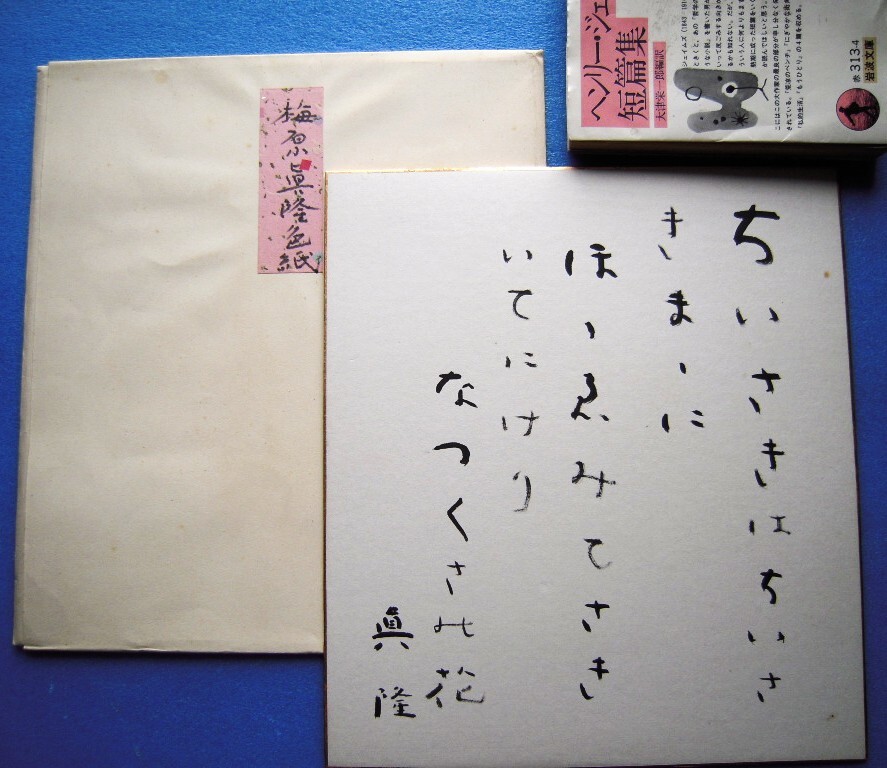 ちいさきはちいさ
きまゝに
ほゝゑみてさき
いてにけり
なつくさの花
眞隆
梅原眞隆色紙
ヘンリー・ジェ
短篇集
大津栄一郎編訳
赤 313-4
岩波文庫